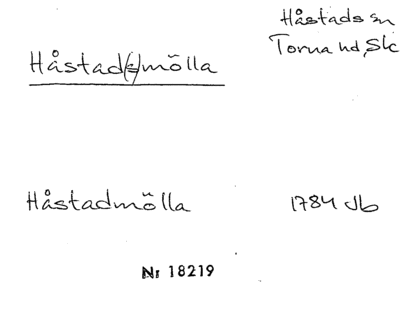 Håstads sn
Torna hd, Sk
Håstad(s)mölla
Håstadmölla 1784 Jb
Nr 18219